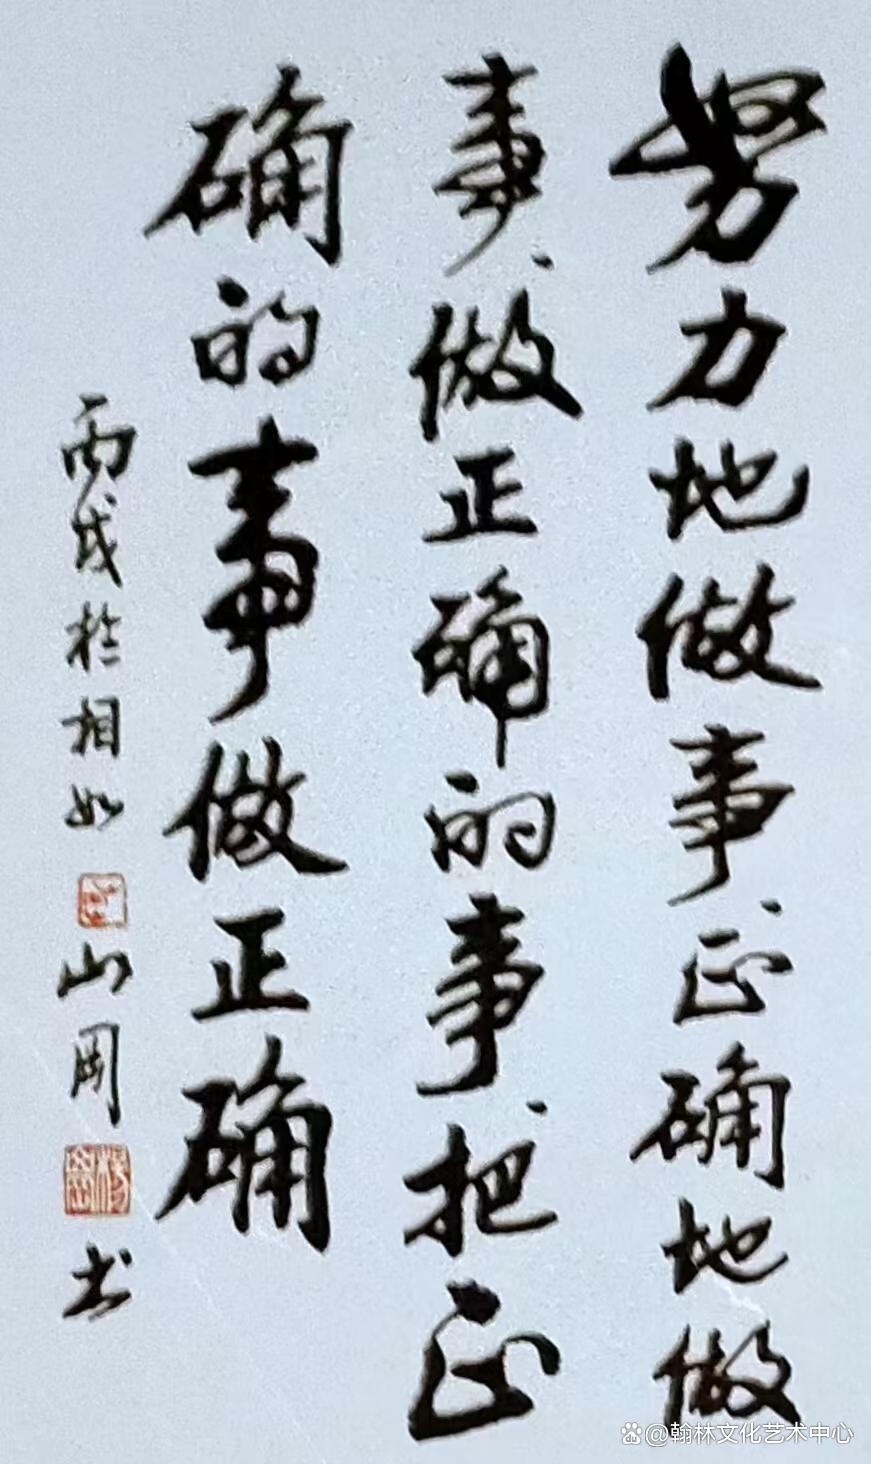 努力地做事、正确地做
事、做正确的事、把正
确的事做正确
丙戌於相如
山周
书
@翰林文化艺术中心